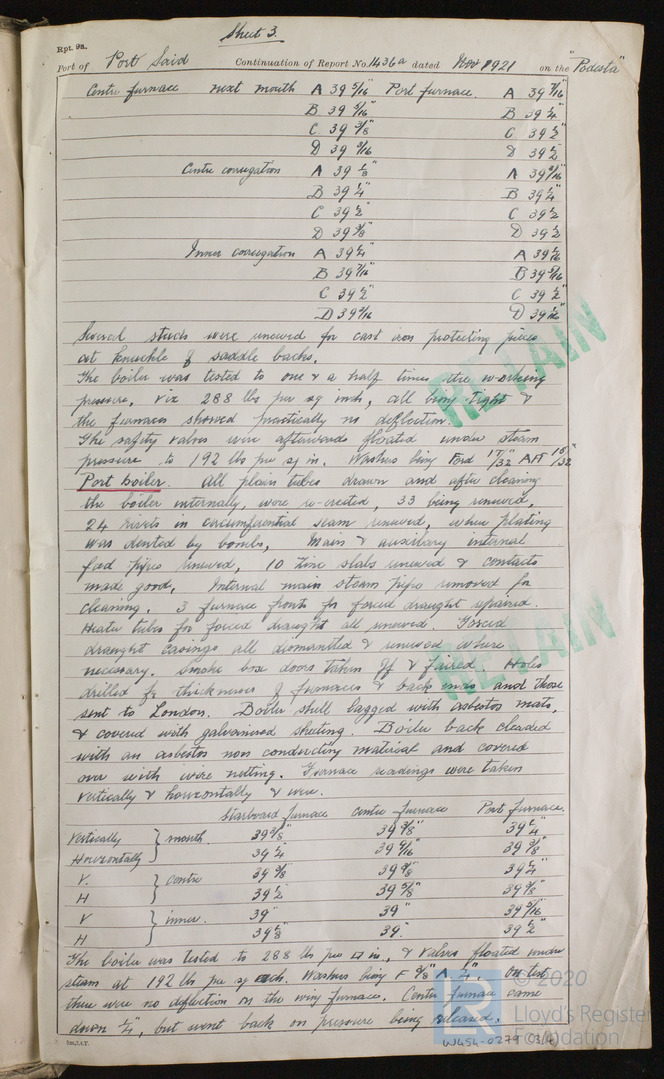 Sheet 3.
Rpt. 9a.
Port of Port Said Continuation of Report No. 1436a dated Nov 1921 on the "Podesta"
Centre furnace next mouth A 39 5/16" Port furnace. A 39 7/16"
B 39 5/16" B 39 1/4"
C 39 3/8" C 39 1/2"
D 39 5/16 D 39 1/2
Centre corrugation A 39 1/8" A 39 9/16"
B 39 1/4" B 39 1/4"
C 39 1/2" C 39 1/2"
D 39 3/8" D 39 1/2
Inner corrugation A 39 1/4"
B 39 7/16" B 39 5/16"
C 39 1/2" C 39 1/2"
D 39 9/16
Several studs were renewed for cast iron protecting pieces
at knuckle of saddle backs.
The boiler was tested to one & a half times the working
pressure, viz 288 lbs per sq inch, all being tight &
the furnaces showed practically no deflection.
The safety valves were afterwards floated under steam
pressure to 192 lbs per sq in. Washers being Ford 17/32" Aft 15/32"
Port boiler. All plain tubes drawn and after cleaning
the boiler internally, were re-erected, 33 being renewed,
24 rivets in circumferential seam renewed, when plating
was dented by bombs, Main & auxiliary internal
feed pipes renewed, 10 zinc slabs renewed & contacts
made good, Internal main steam pipe removed for
cleaning. 3 furnace fronts for forced draught repaired.
Heater tubes for forced draught all renewed. Forced
draught casings all dismantled & renewed where
necessary. Smoke box doors taken off & faired. Holes
drilled for thicknesses of furnaces & back ends and those
sent to London. Boiler shell lagged with asbestos mats,
& covered with galvanised sheeting. Boiler back cleaded
with an asbestos non conducting material and covered
over with wire netting. Furnace readings were taken
vertically & horizontally & were.
Starboard furnace Centre furnace Port furnace.
Vertically } mouth. 39 3/8" 39 3/8" 39 1/4"
Horizontally 39 1/4 39 9/16" 39 3/8"
V. } centre 39 3/8" 39 3/8" 39 1/4"
H 39 1/2 39 5/8" 39 3/8"
V } inner. 39" 39" 39 5/16"
H 39 3/8" 39." 39 1/2"
The boiler was tested to 288 lbs per □ in, & valves floated under
steam at 192 lbs per sq inch. Washers being F 3/8" A. 1/4". On test
there were no deflection on the wing furnaces. Centre furnace came
down 1/4", but went back on pressure being released.
RETAIN
RETAIN
© 2020
Lloyd's Register
Foundation
W454-0279 (3/4)